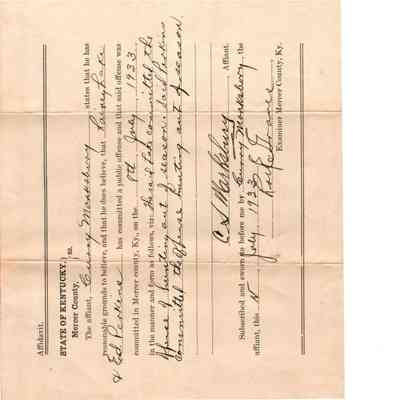 Affidavit.
STATE OF KENTUCKY, } ss.
Mercer County,
The affiant, Curry Monksbury states that he has
reasonable grounds to believe, and that he does believe, that Lake
& Ed. Perkins has committed a public offense and that said offense was
committed in Mercer county, Ky., on the 8th July 1933
in the manner and form as follows, viz: Lake committed the
offense of hunting out of season. Perkins
committed the offense hunting out of season
C S Marksbury, Affiant.
Subscribed and sworn to before me by Curry Monksbury the
affiant, this July 1933
Examiner Mercer County, Ky.